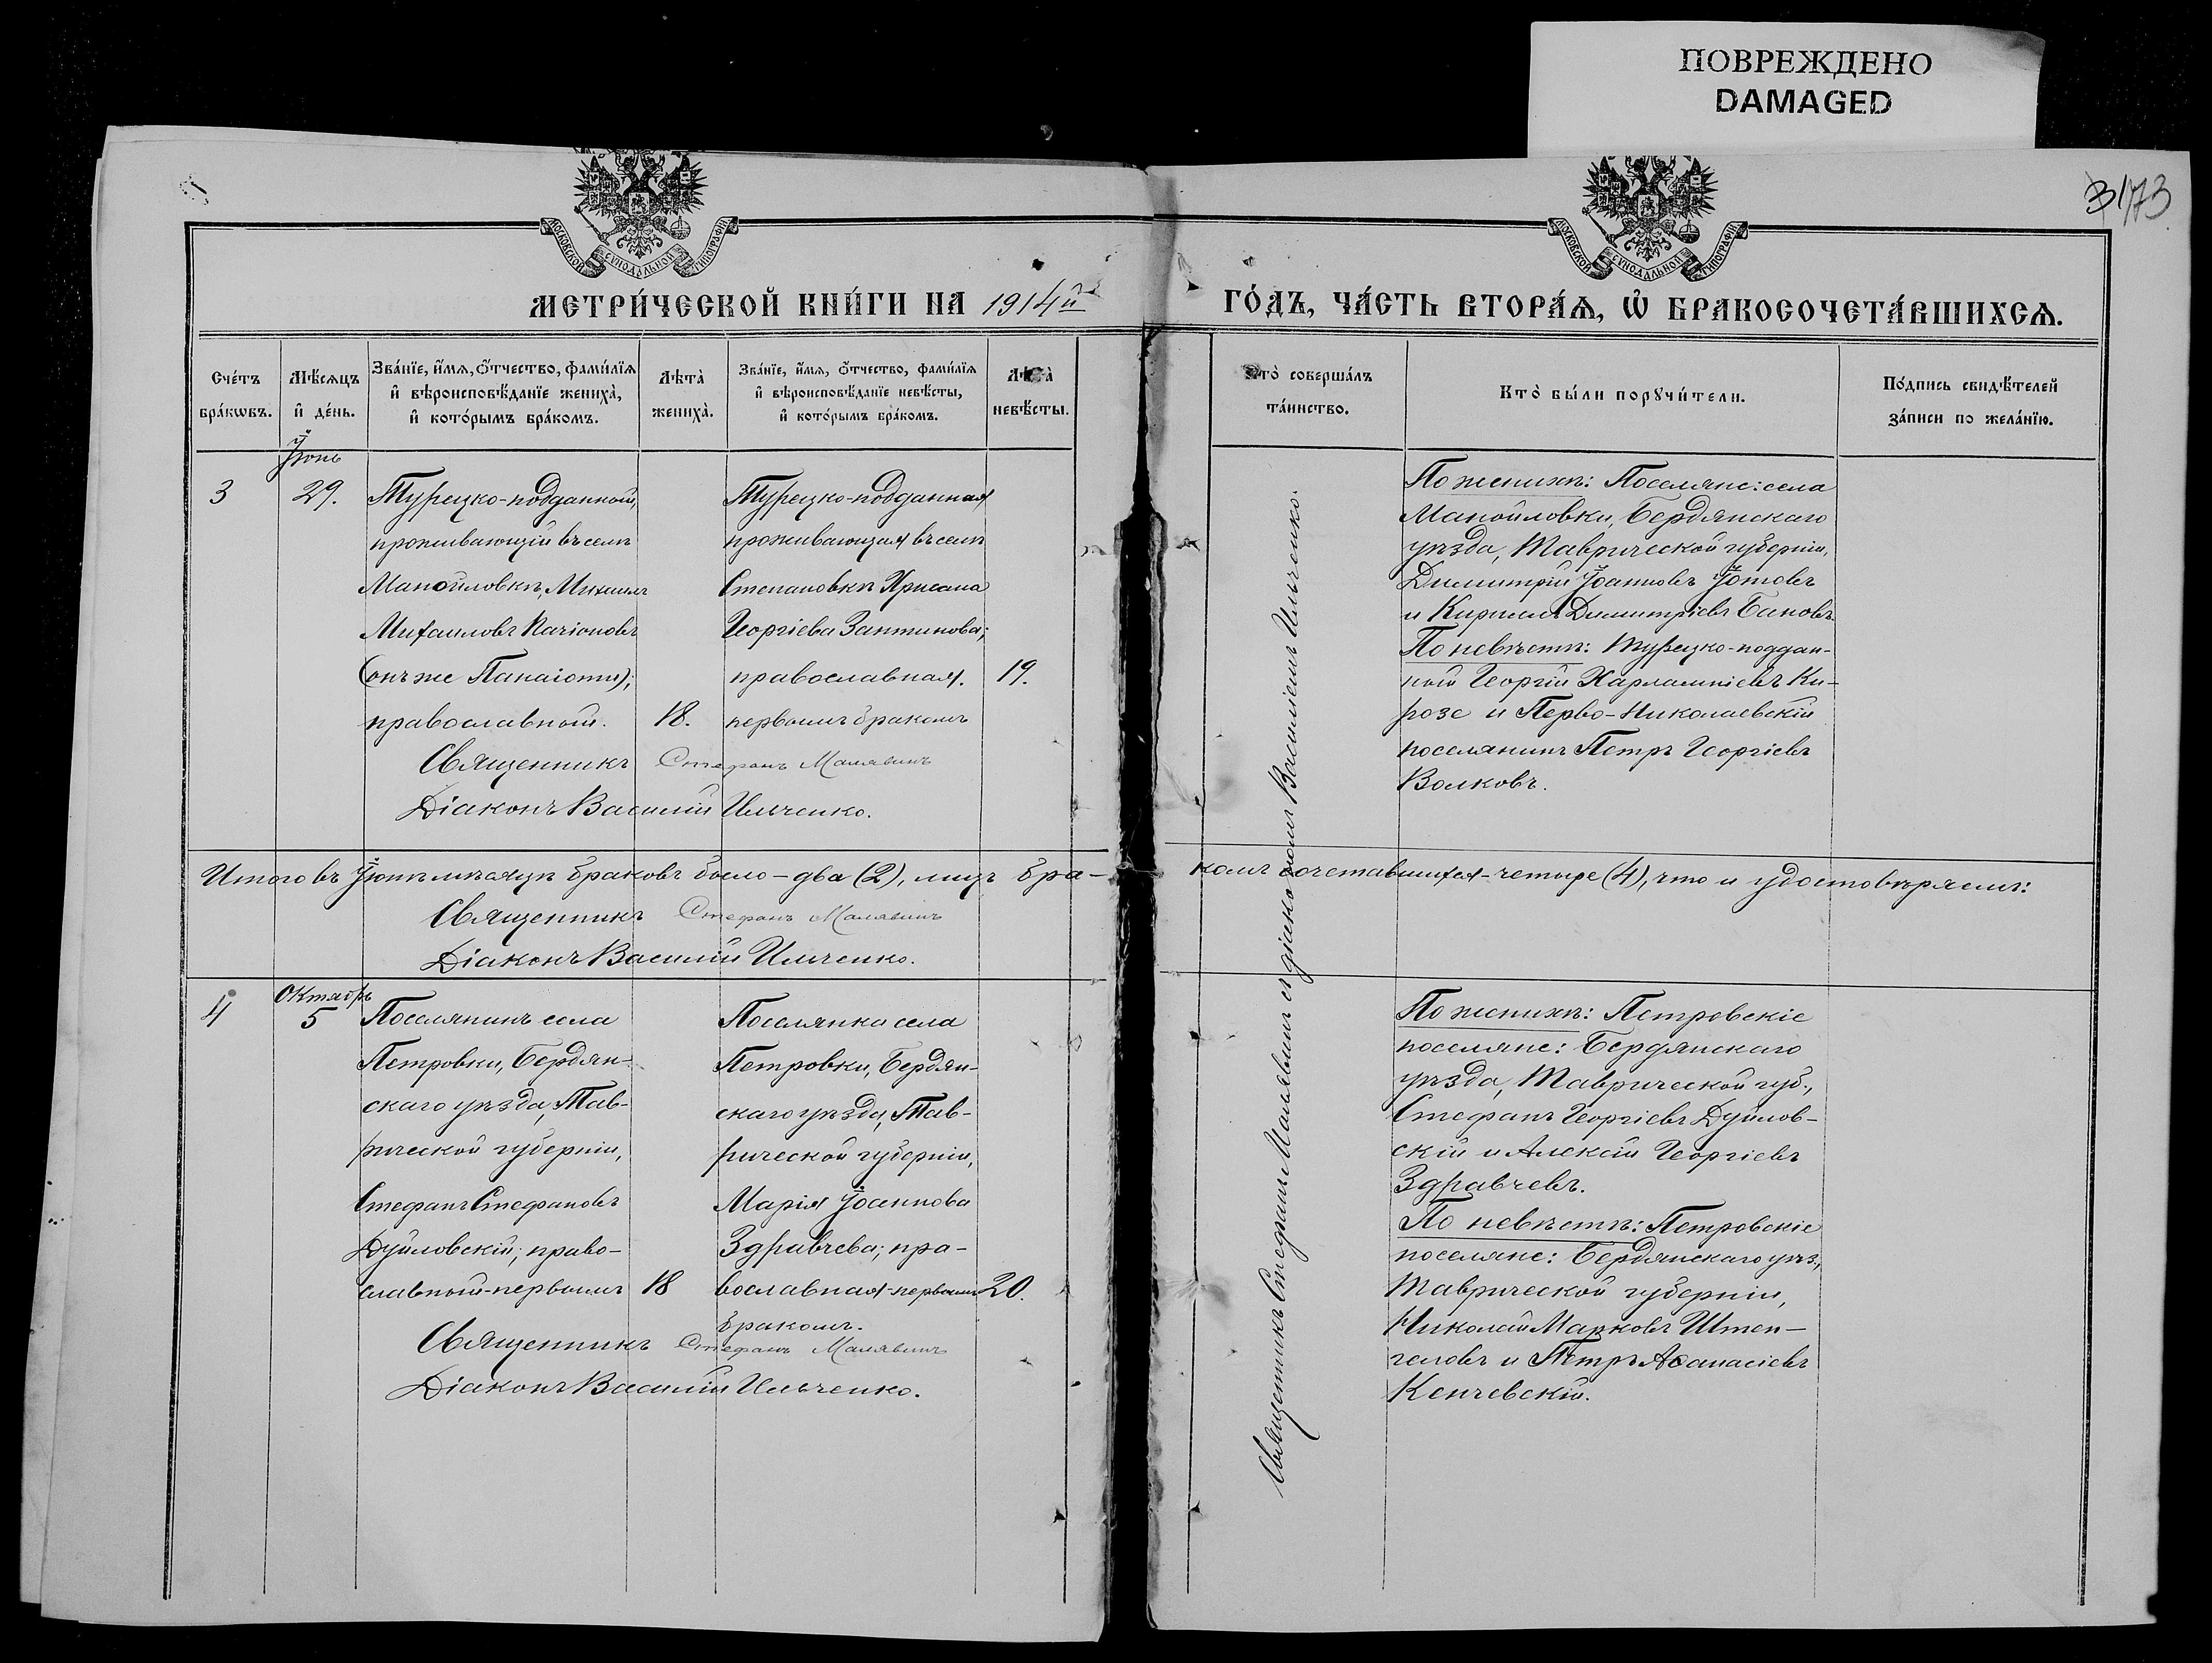 ПОВРЕЖДЕНО
DAMAGED
173
МОСКОВСКОЙ СѴНОДАЛЬНОЙ ТИПОГРАФІИ
МОСКОВСКОЙ СѴНОДАЛЬНОЙ ТИПОГРАФІИ
МЕТРИ́ЧЕСКОЙ КНИ́ГИ НА 1914й
ГО́ДЪ, ЧА́СТЬ ВТОРА́Ѧ, Ѡ҆ БРАКОСОЧЕТА́ВШИХСѦ.
Сче́тъ
бра́кѡвъ.
Мѣ́сѧцъ
и҆ де́нь.
Зва́нїе, и҆́мѧ, ѻ҆́тчество, фами́лїѧ
и҆ вѣроисповѣ́данїе жениха̀,
и҆ кото́рымъ бра́комъ.
Лѣта̀
жениха̀.
Зва́нїе, и҆́мѧ, ѻ҆́тчество, фами́лїѧ
и҆ вѣроисповѣ́данїе невѣ́сты,
и҆ кото́рымъ бра́комъ.
Лѣта̀
невѣ́сты.
Кто̀ соверша́лъ
та́инство.
Кто̀ бы́ли порꙋчи́тели.
По́дпись свидѣ́телей
за́писи по жела́нїю.
Іюнь
3
29.
Турецко-подданный,
проживающій въ селѣ
Манойловкѣ, Михаилъ
Михаиловъ Пачіоновъ
(онъ же Панаіоти);
православный.
18.
Турецко-подданная
проживающая въ селѣ
Степановкѣ Хрисана
Георгіева Зантинова;
православная.
первымъ бракомъ
19.
Священникъ Стефанъ Малявинъ
Діаконъ Василій Ильченко.
По женихѣ: Поселяне: села
Манойловки, Бердянскаго
уѣзда, Таврической губерніи,
Димитрій Іоанновъ Іотовъ
и Кириллъ Димитріевъ Бановъ.
По невѣстѣ: Турецко-поддан-
ный Георгій Харлампіевъ Ки-
розе и Перво-Николаевскій
поселянинъ Петръ Георгіевъ
Волковъ.
Итого въ Іюнѣ мѣсяцѣ браковъ было – два (2), лицъ бра-
комъ сочетавшихся – четыре (4), что и удостовѣряемъ:
Священникъ Стефанъ Малявинъ
Діаконъ Василій Ильченко.
Священникъ Стефанъ Малявинъ съ діакономъ Василіемъ Ильченко.
4
Октябрь
5
Поселянинъ села
Петровки, Бердян-
скаго уѣзда, Тав-
рической губерніи,
Стефанъ Стефановъ
Дуйловскій; право-
славный-первымъ
18
Поселянка села
Петровки, Бердян-
скаго уѣзда, Тав-
рической губерніи,
Марія Іоаннова
Здравчева; пра-
вославная-первымъ
бракомъ.
20.
Священникъ Стефанъ Малявинъ
Діаконъ Василій Ильченко.
По женихѣ: Петровскіе
поселяне: Бердянскаго
уѣзда, Таврической губ.,
Стефанъ Георгіевъ Дуйлов-
скій и Алексій Георгіевъ
Здравчевъ.
По невѣстѣ: Петровскіе
поселяне: Бердянскаго уѣз.,
Таврической губерніи,
Николай Марковъ Штен-
геловъ и Петръ Аѳанасіевъ
Кенчевскій.